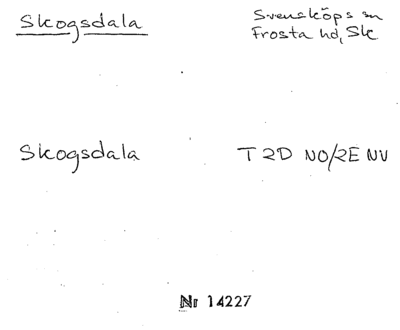 Skogsdala
Svensköps sn
Frosta hd, Sk
Skogsdala
T 2D NO/2E NV
Nr 14227